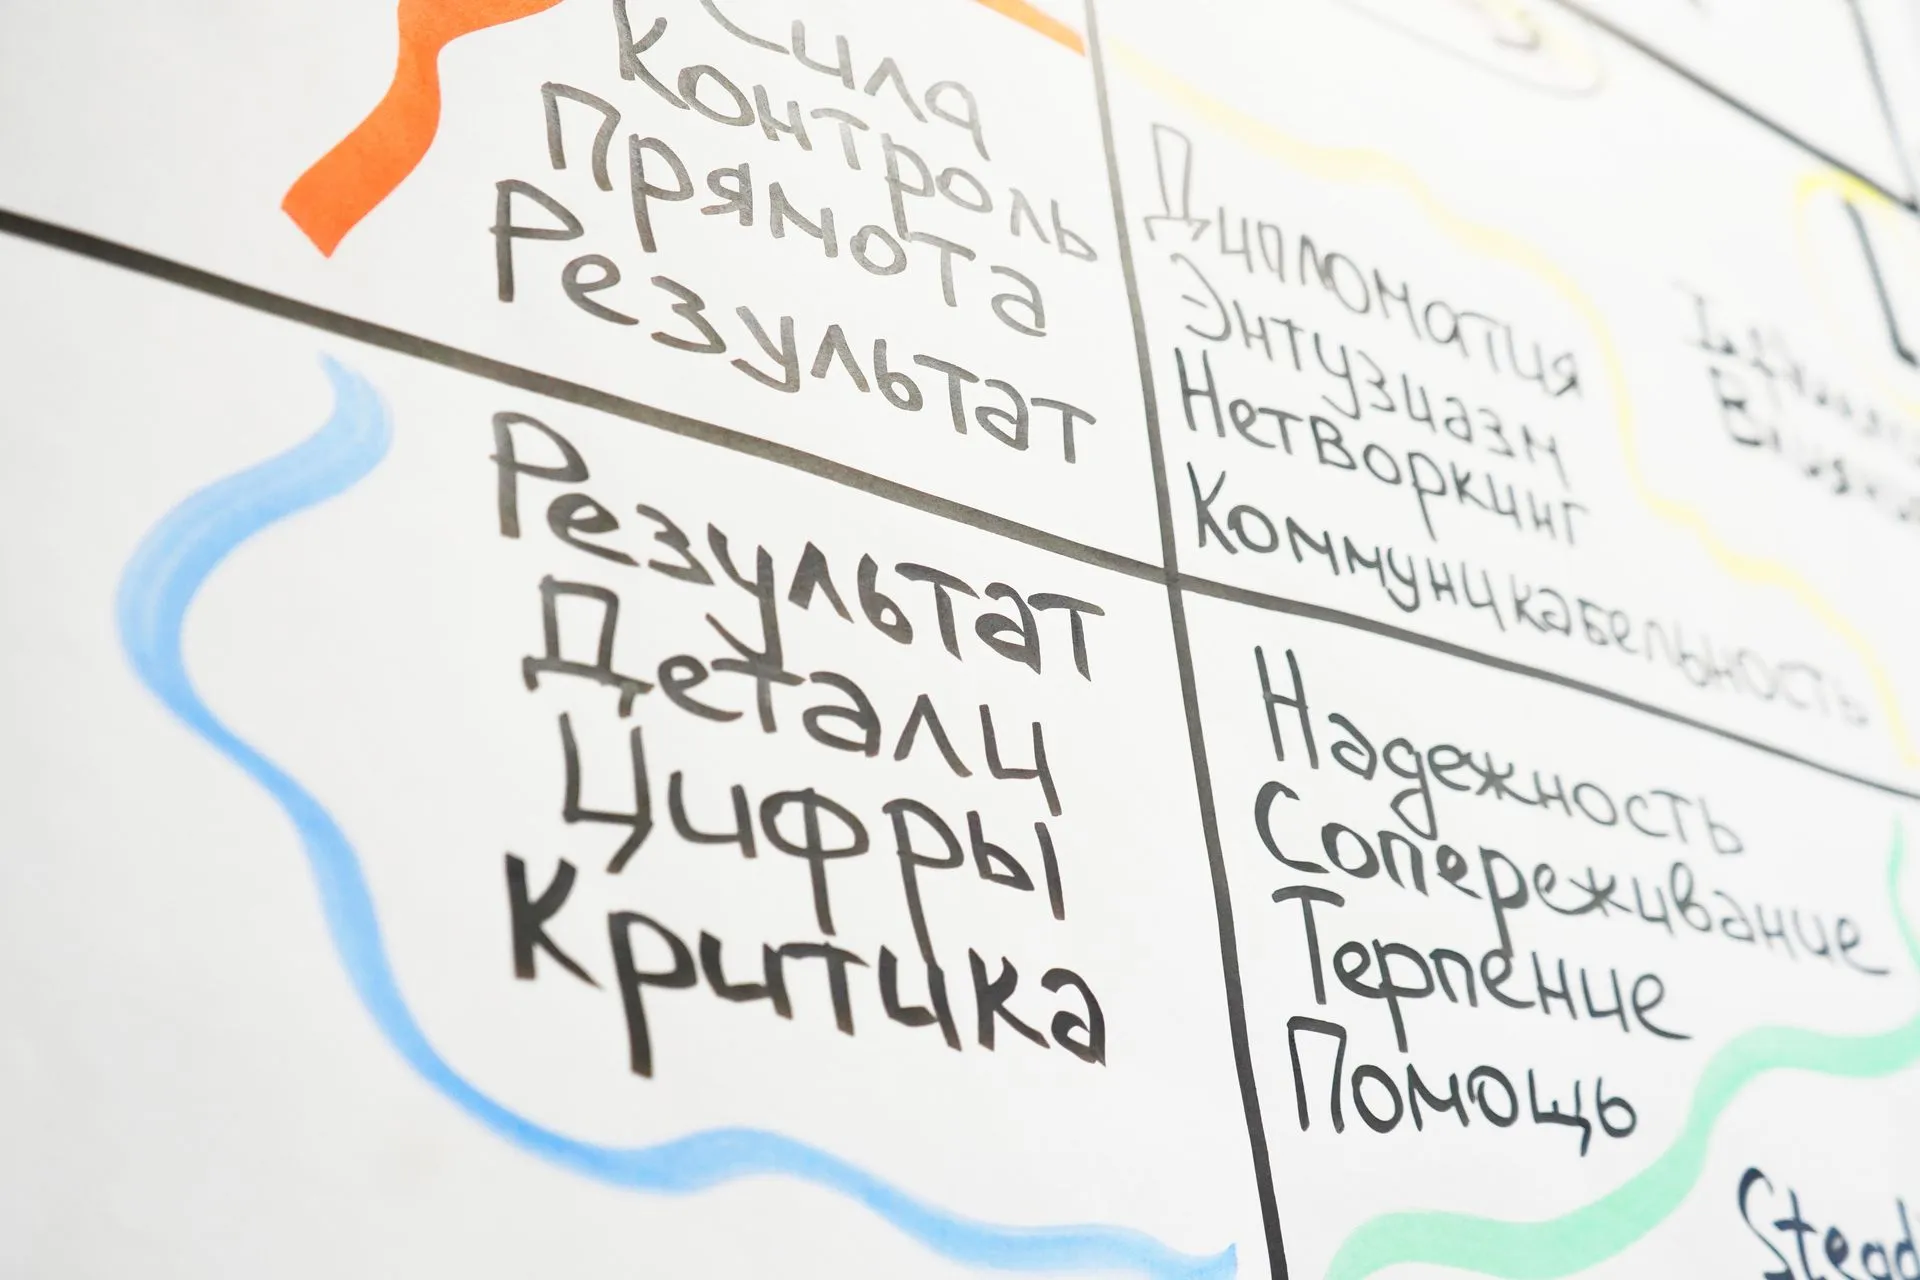 Сила
Контроль
Прямота
Результат
Дипломатия
Энтузиазм
Нетворкинг
Коммуникабельность
Результат
Детали
Цифры
Критика
Надежность
Сопереживание
Терпение
Помощь